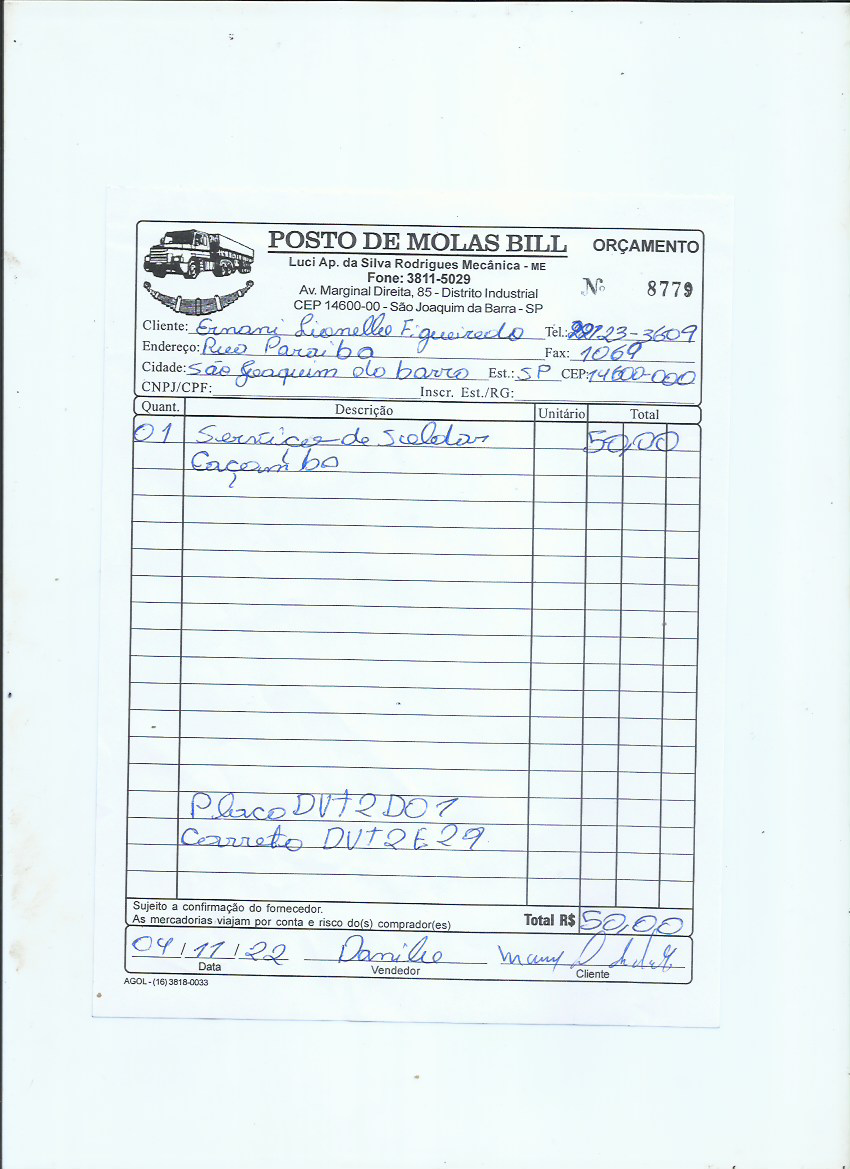 POSTO DE MOLAS BILL
ORÇAMENTO
Luci Ap. da Silva Rodrigues Mecânica - ME
Fone: 3811-5029
Av. Marginal Direita, 85 - Distrito Industrial
CEP 14600-00 - São Joaquim da Barra - SP
Nº 8779
Cliente: Ernani Lionello Figueiredo Tel.: 23-3609
Endereço: Rua Paraiba Fax: 1069
Cidade: São Joaquim da barra Est.: SP CEP: 14600-000
CNPJ/CPF: Inscr. Est./RG:
Quant. Descrição Unitário Total
01 Serviço de Soldar 50,00
Caçamba
Placa DVT2D01
Carreta DVT2E29
Sujeito a confirmação do fornecedor.
As mercadorias viajam por conta e risco do(s) comprador(es)
Total R$ 50,00
04/11/22 Danilo
Data Vendedor Cliente
AGOL - (16) 3818-0033